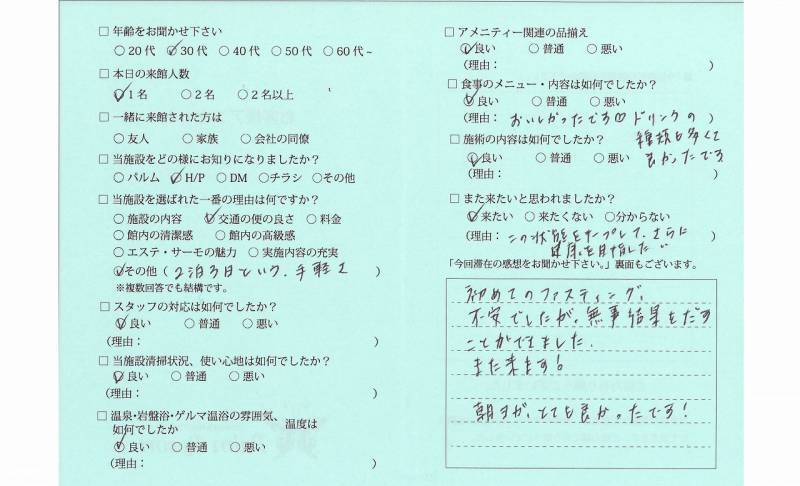 □ 年齢をお聞かせ下さい
○ 20代 ○ 30代 ○ 40代 ○ 50代 ○ 60代~
□ 本日の来館人数
○ 1名 ○ 2名 ○ 2名以上
□ 一緒に来館された方は
○ 友人 ○ 家族 ○ 会社の同僚
□ 当施設をどの様にお知りになりましたか?
○ パルム ○ H/P ○ DM ○チラシ ○その他
□ 当施設を選ばれた一番の理由は何ですか?
○ 施設の内容 ○ 交通の便の良さ ○ 料金
○ 館内の清潔感 ○ 館内の高級感
○ エステ・サーモの魅力 ○ 実施内容の充実
○ その他 ( 2泊3日という、手軽さ )
※複数回答でも結構です。
□ スタッフの対応は如何でしたか?
○ 良い ○ 普通 ○ 悪い
(理由: )
□ 当施設清掃状況、使い心地は如何でしたか?
○ 良い ○ 普通 ○ 悪い
(理由: )
□ 温泉・岩盤浴・ゲルマ温浴の雰囲気、温度は
如何でしたか
○ 良い ○ 普通 ○ 悪い
(理由: )
□ アメニティー関連の品揃え
○ 良い ○ 普通 ○ 悪い
(理由: )
□ 食事のメニュー・内容は如何でしたか?
○ 良い ○ 普通 ○ 悪い
(理由: おいしかったです♡ドリンクの )
種類も多くて
良かったです
□ 施術の内容は如何でしたか?
○ 良い ○ 普通 ○ 悪い
(理由: )
□ また来たいと思われましたか?
○ 来たい ○ 来たくない ○分からない
(理由: この状態をキープして、さらに )
健康を目指したい
「今回滞在の感想をお聞かせ下さい。」裏面もございます。
初めてのファスティング、
不安でしたが、無事結果をだす
ことができました。
また来ます!
朝ヨガ、とても良かったです!